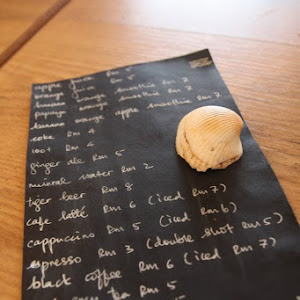 apple juice Rm 5
orange juice Rm 5
banana orange smoothie Rm 7
papaya orange smoothie Rm 7
banana orange apple smoothie Rm 7
coke Rm 4
100+ Rm 4
ginger ale Rm 5
mineral water Rm 2
tiger beer Rm 8
cafe latté Rm 6 (iced Rm 7)
cappuccino Rm 5 (iced Rm 6)
espresso Rm 3 (double shot Rm 5)
black coffee Rm 6 (iced Rm 7)
tea Rm 5